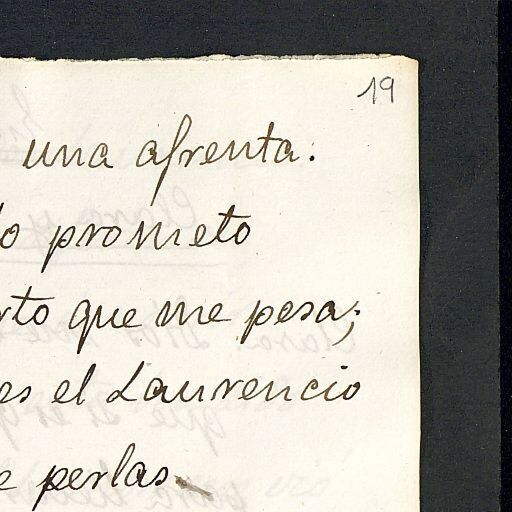 19
una afrenta.
lo prometo
rto que me pesa;
es el Laurencio
e perlas